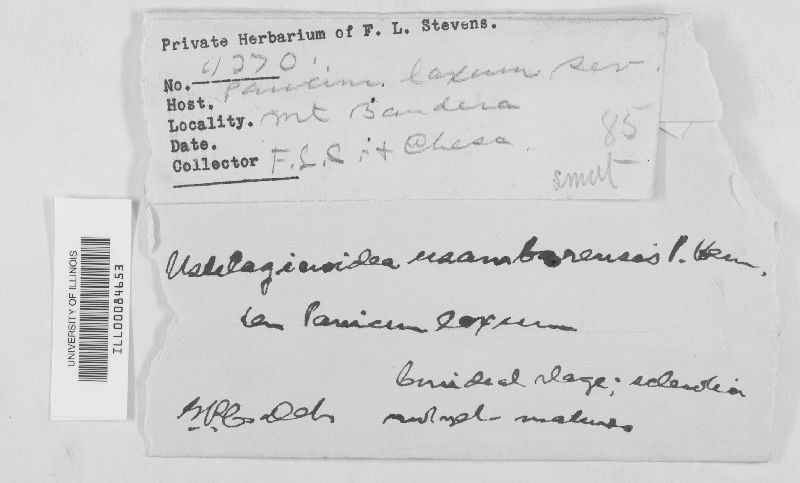 Private Herbarium of F. L. Stevens.
No. 4270.
Host. Panicum laxum Sw.
Locality. Mt Bandera
Date.
Collector F.L.S. Chase.
85
smut
Ustilaginoidea usambarensis P. Hen.
on Panicum laxum
Conidial stage; sclerotia
not yet mature
UNIVERSITY OF ILLINOIS
ILL00084653